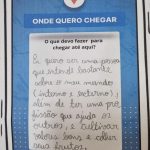 ONDE QUERO CHEGAR
O que devo fazer para
chegar até aqui?
Eu quero ser uma pessoa
que entende bastante
sobre o meu mundo
(interno e externo),
além de ter uma pro
fissão que ajuda os
outros, e cultivar
valores bons e colher
seus frutos.